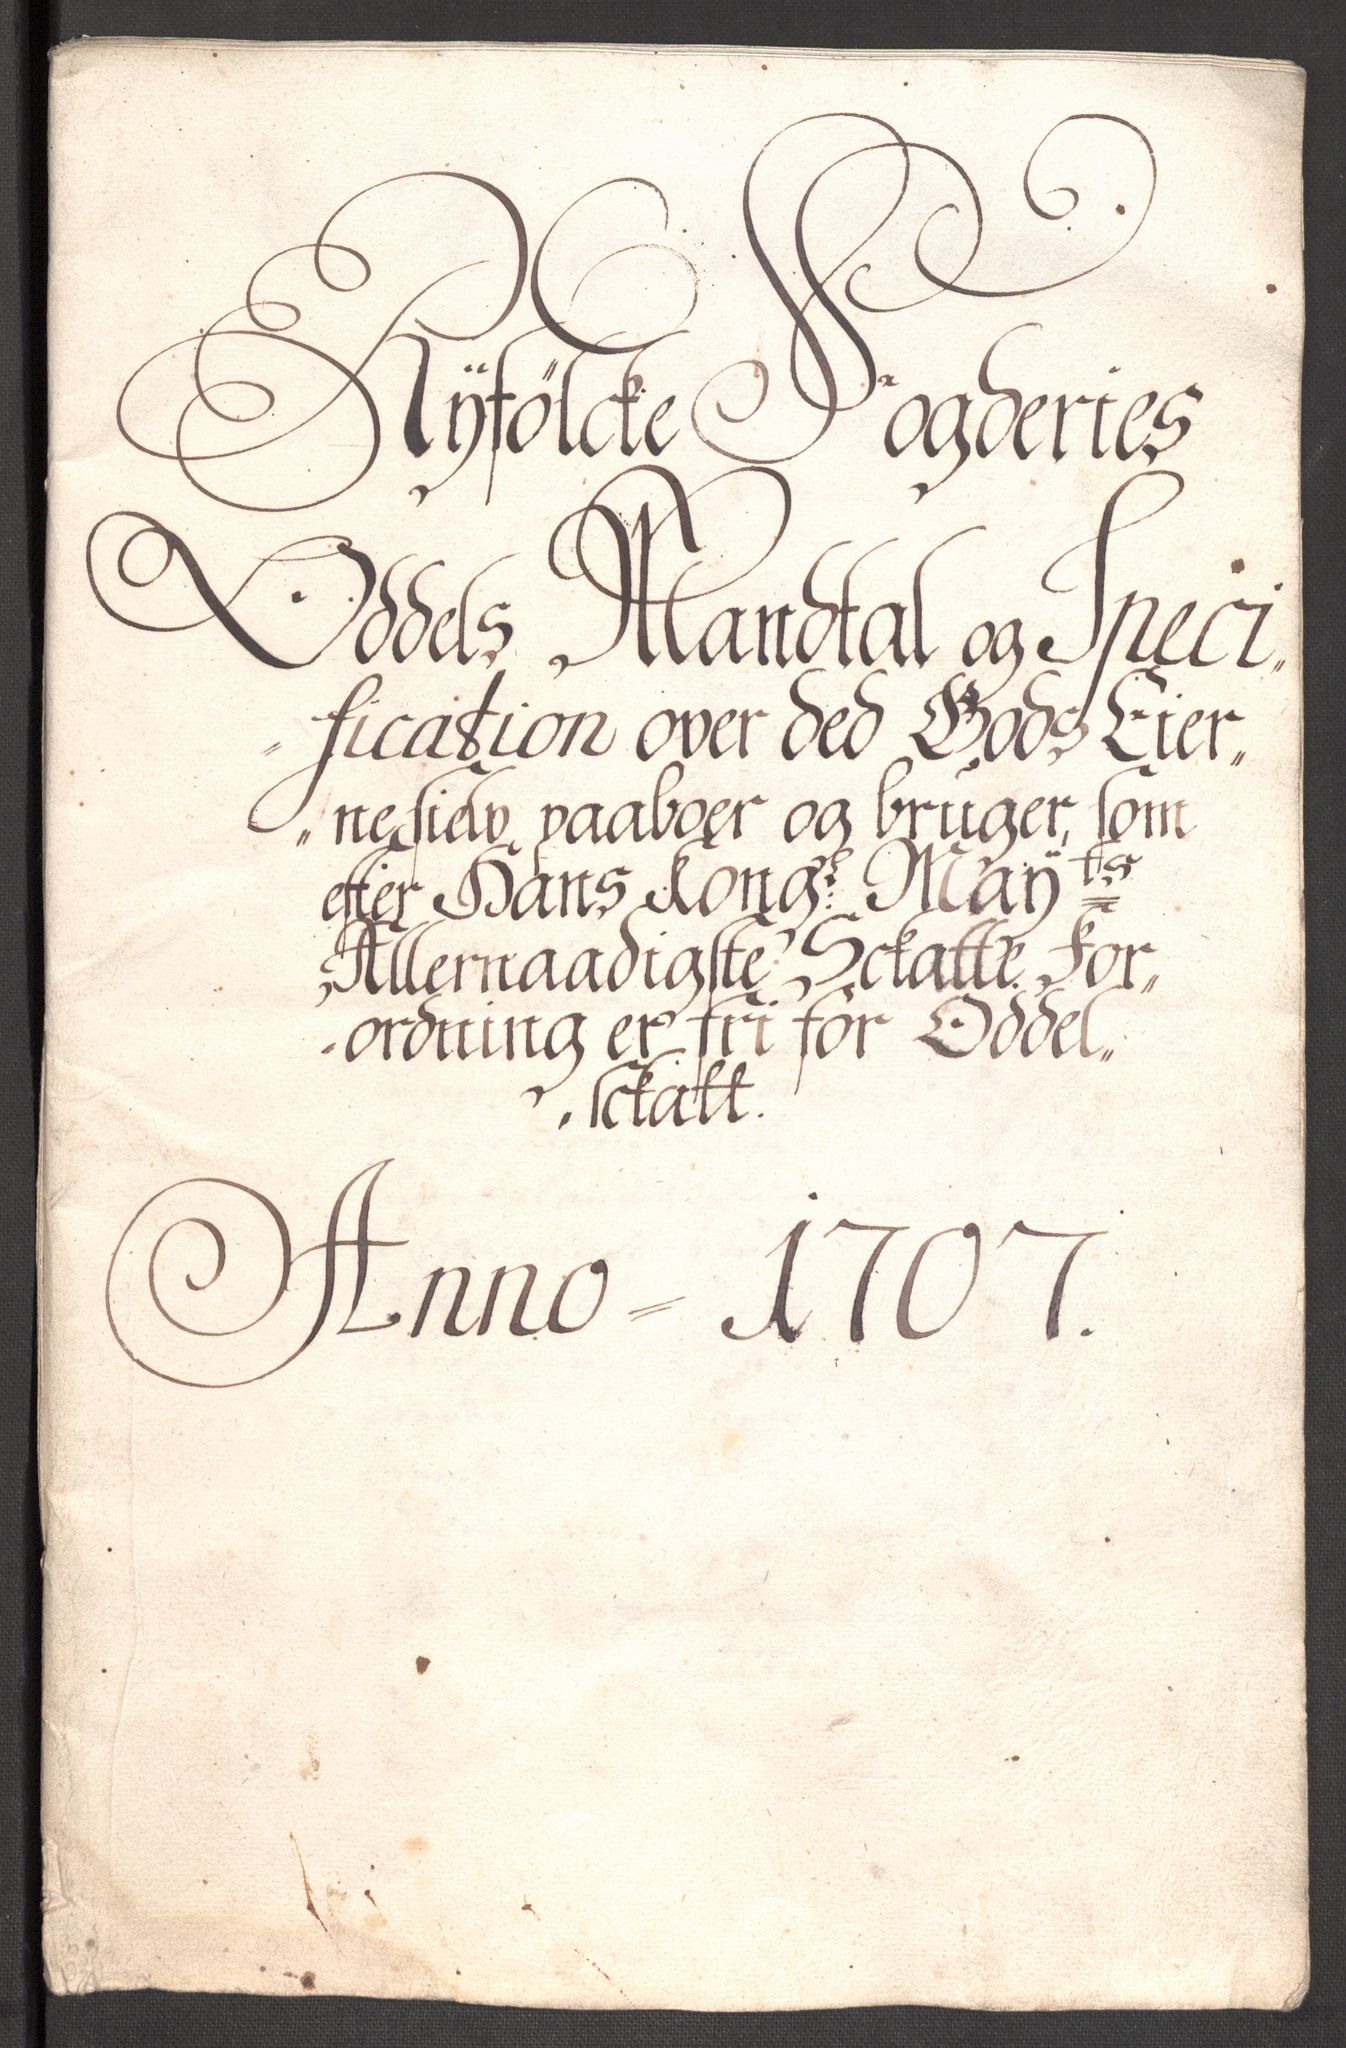 Ryfölcke Fogderies
Oddels Mandtal og Speci„
„fication over ded Gods Eier„
„ne sielv paaboer og bruger, som
efter Hans Kong: May:ts
Allernaadigste Sckatte For„
„ordning er fri for Oddel„
„sckatt.
Anno = 1707.